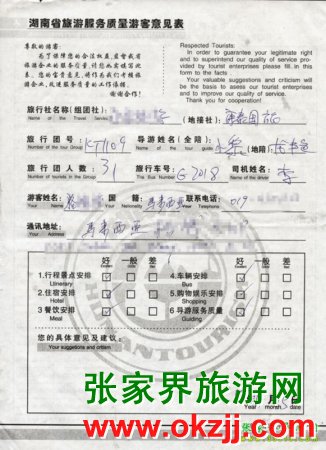 湖南省旅游服务质量游客意见表
尊敬的游客：
为了保障您的合法权益，监督我省
旅游企业的服务质量，请您如实填写此
表，您的宝贵意见，将作为我们考核旅
游企业，改进服务质量的工作依据。
谢谢合作！
Respected Tourists:
In order to guarantee your legitimate right
and to superintend our quality of service pro-
vided by tourist enterprises please fill in this
form to the facts
Your valuable suggestions and criticism will
be the basis to assess our tourist enterprises
and to improve our quality of service.
Thank you for cooperation!
旅行社名称(组团社): (地接社):
Name of the Travel Service
旅行团号 KT1109 导游姓名(全陪) (地陪)
Number of the tour Group Name of the tour guide
旅行团人数 31 旅行车号: G2018 司机姓名: 李
Number of tourists in the Group The Bus Number Name of the driver
游客姓名: 国籍: 马来西亚 联系电话: 019
Your Name Your Nationality Your Telephone
通讯地址: 马来西亚
Your Address
好 一般 差 好 一般 差
1.行程景点安排 4.车辆安排
Itinerary Bus
2.住宿安排 5.购物娱乐安排
Hotel Shopping
3.餐饮安排 6.导游服务质量
Meal Guiding
HUNAN TOURISM
您的具体意见及建议:
Your suggestions and critism
张家界旅游网
Year month 5 date
www.okzjj.com